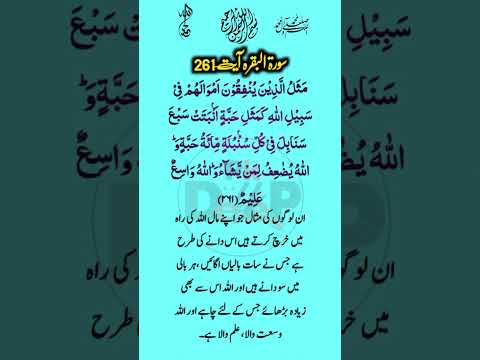 بسم الله الرحمن الرحيم
سورة البقرہ آیت 261
مَثَلُ الَّذِیْنَ یُنْفِقُوْنَ اَمْوَالَهُمْ فِیْ
سَبِیْلِ اللّٰهِ كَمَثَلِ حَبَّةٍ اَنْۢبَتَتْ سَبْعَ
سَنَابِلَ فِیْ كُلِّ سُنْۢبُلَةٍ مِّائَةُ حَبَّةٍؕ وَ
اللّٰهُ یُضٰعِفُ لِمَنْ یَّشَآءُؕ وَ اللّٰهُ وَاسِعٌ
عَلِیْمٌ(۲۶۱)
ان لوگوں کی مثال جو اپنے مال اللہ کی راہ
میں خرچ کرتے ہیں اس دانے کی طرح
ہے جس نے سات بالیاں اگائیں، ہر بالی
میں سو دانے ہیں اور اللہ اس سے بھی
زیادہ بڑھائے جس کے لئے چاہے اور اللہ
وسعت والا، علم والا ہے۔